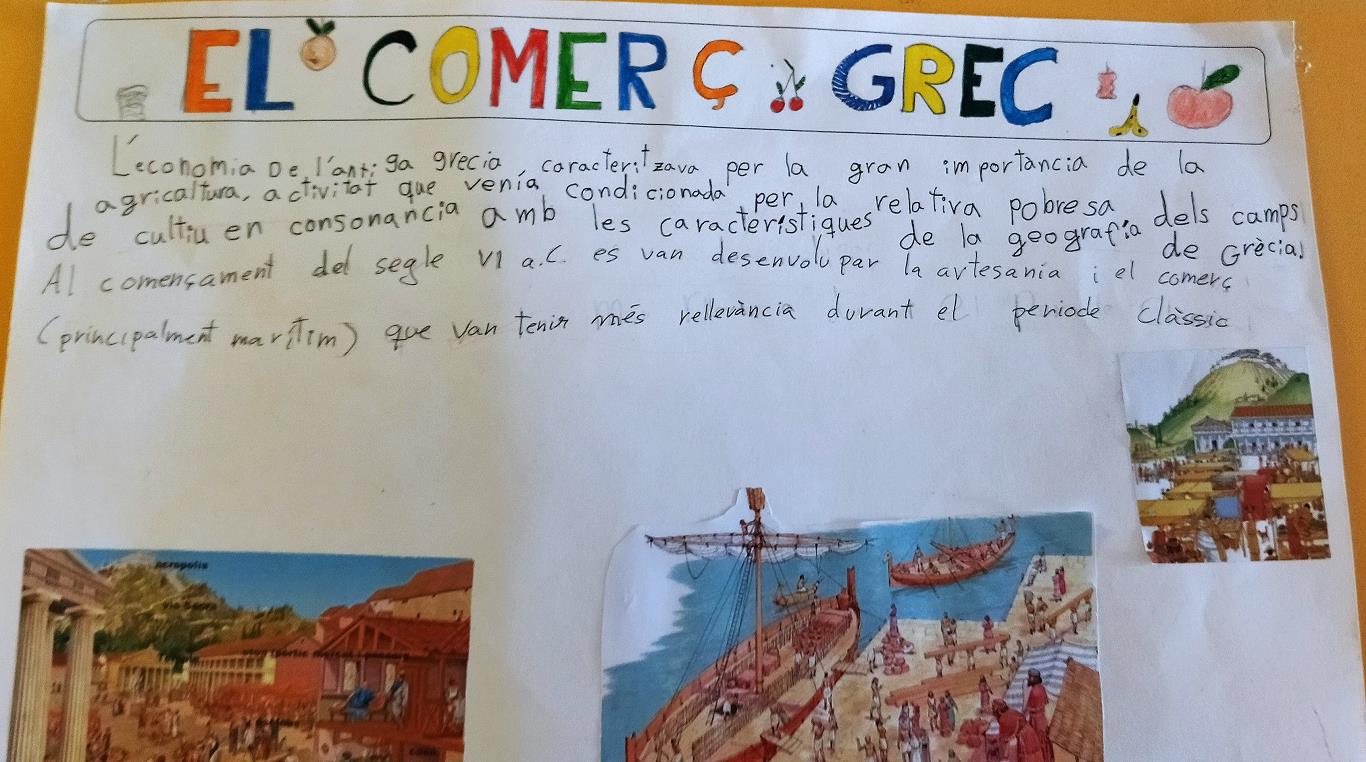 EL COMERÇ GREC
L'economia De l'antiga grecia, caracteritzava per la gran importància de la
agricaltura, activitat que venía condicionada per la relativa pobresa dels camps
de cultiu en consonancia amb les característiques de la geografía de Grècia.
Al començament del segle VI a.C. es van desenvolupar la artesania i el comerç
(principalment marítim) que van tenir més rellevància durant el periode clàssic
acropolis
via Sacra
stoa (portic mercat i passeig